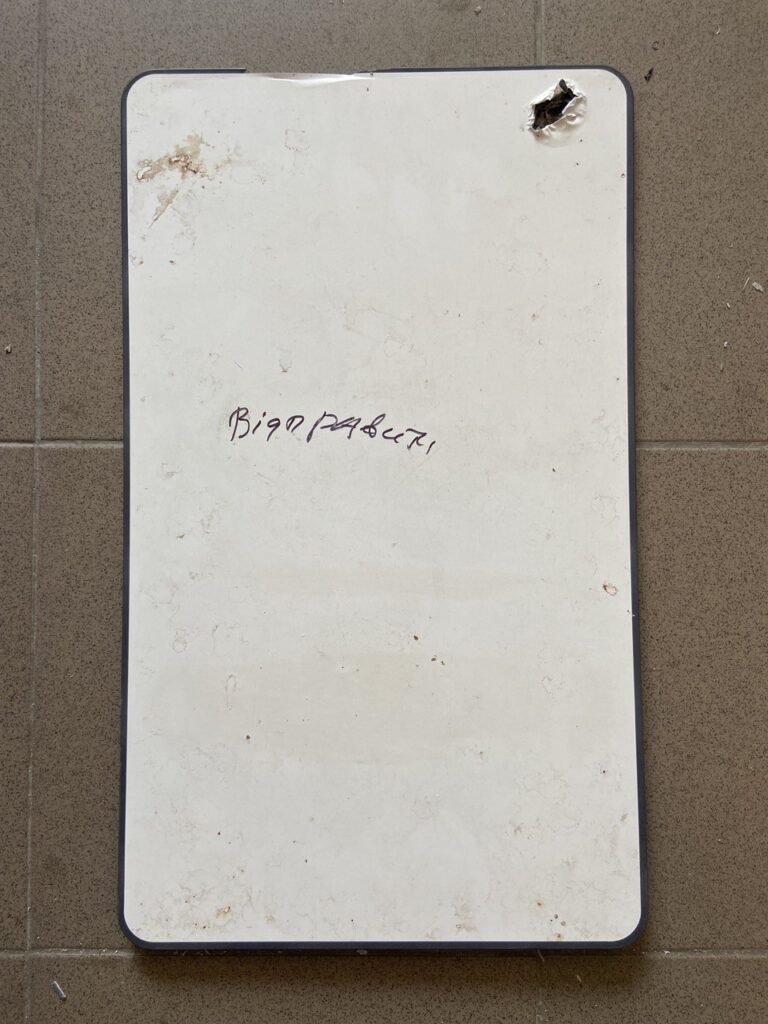 Відправити